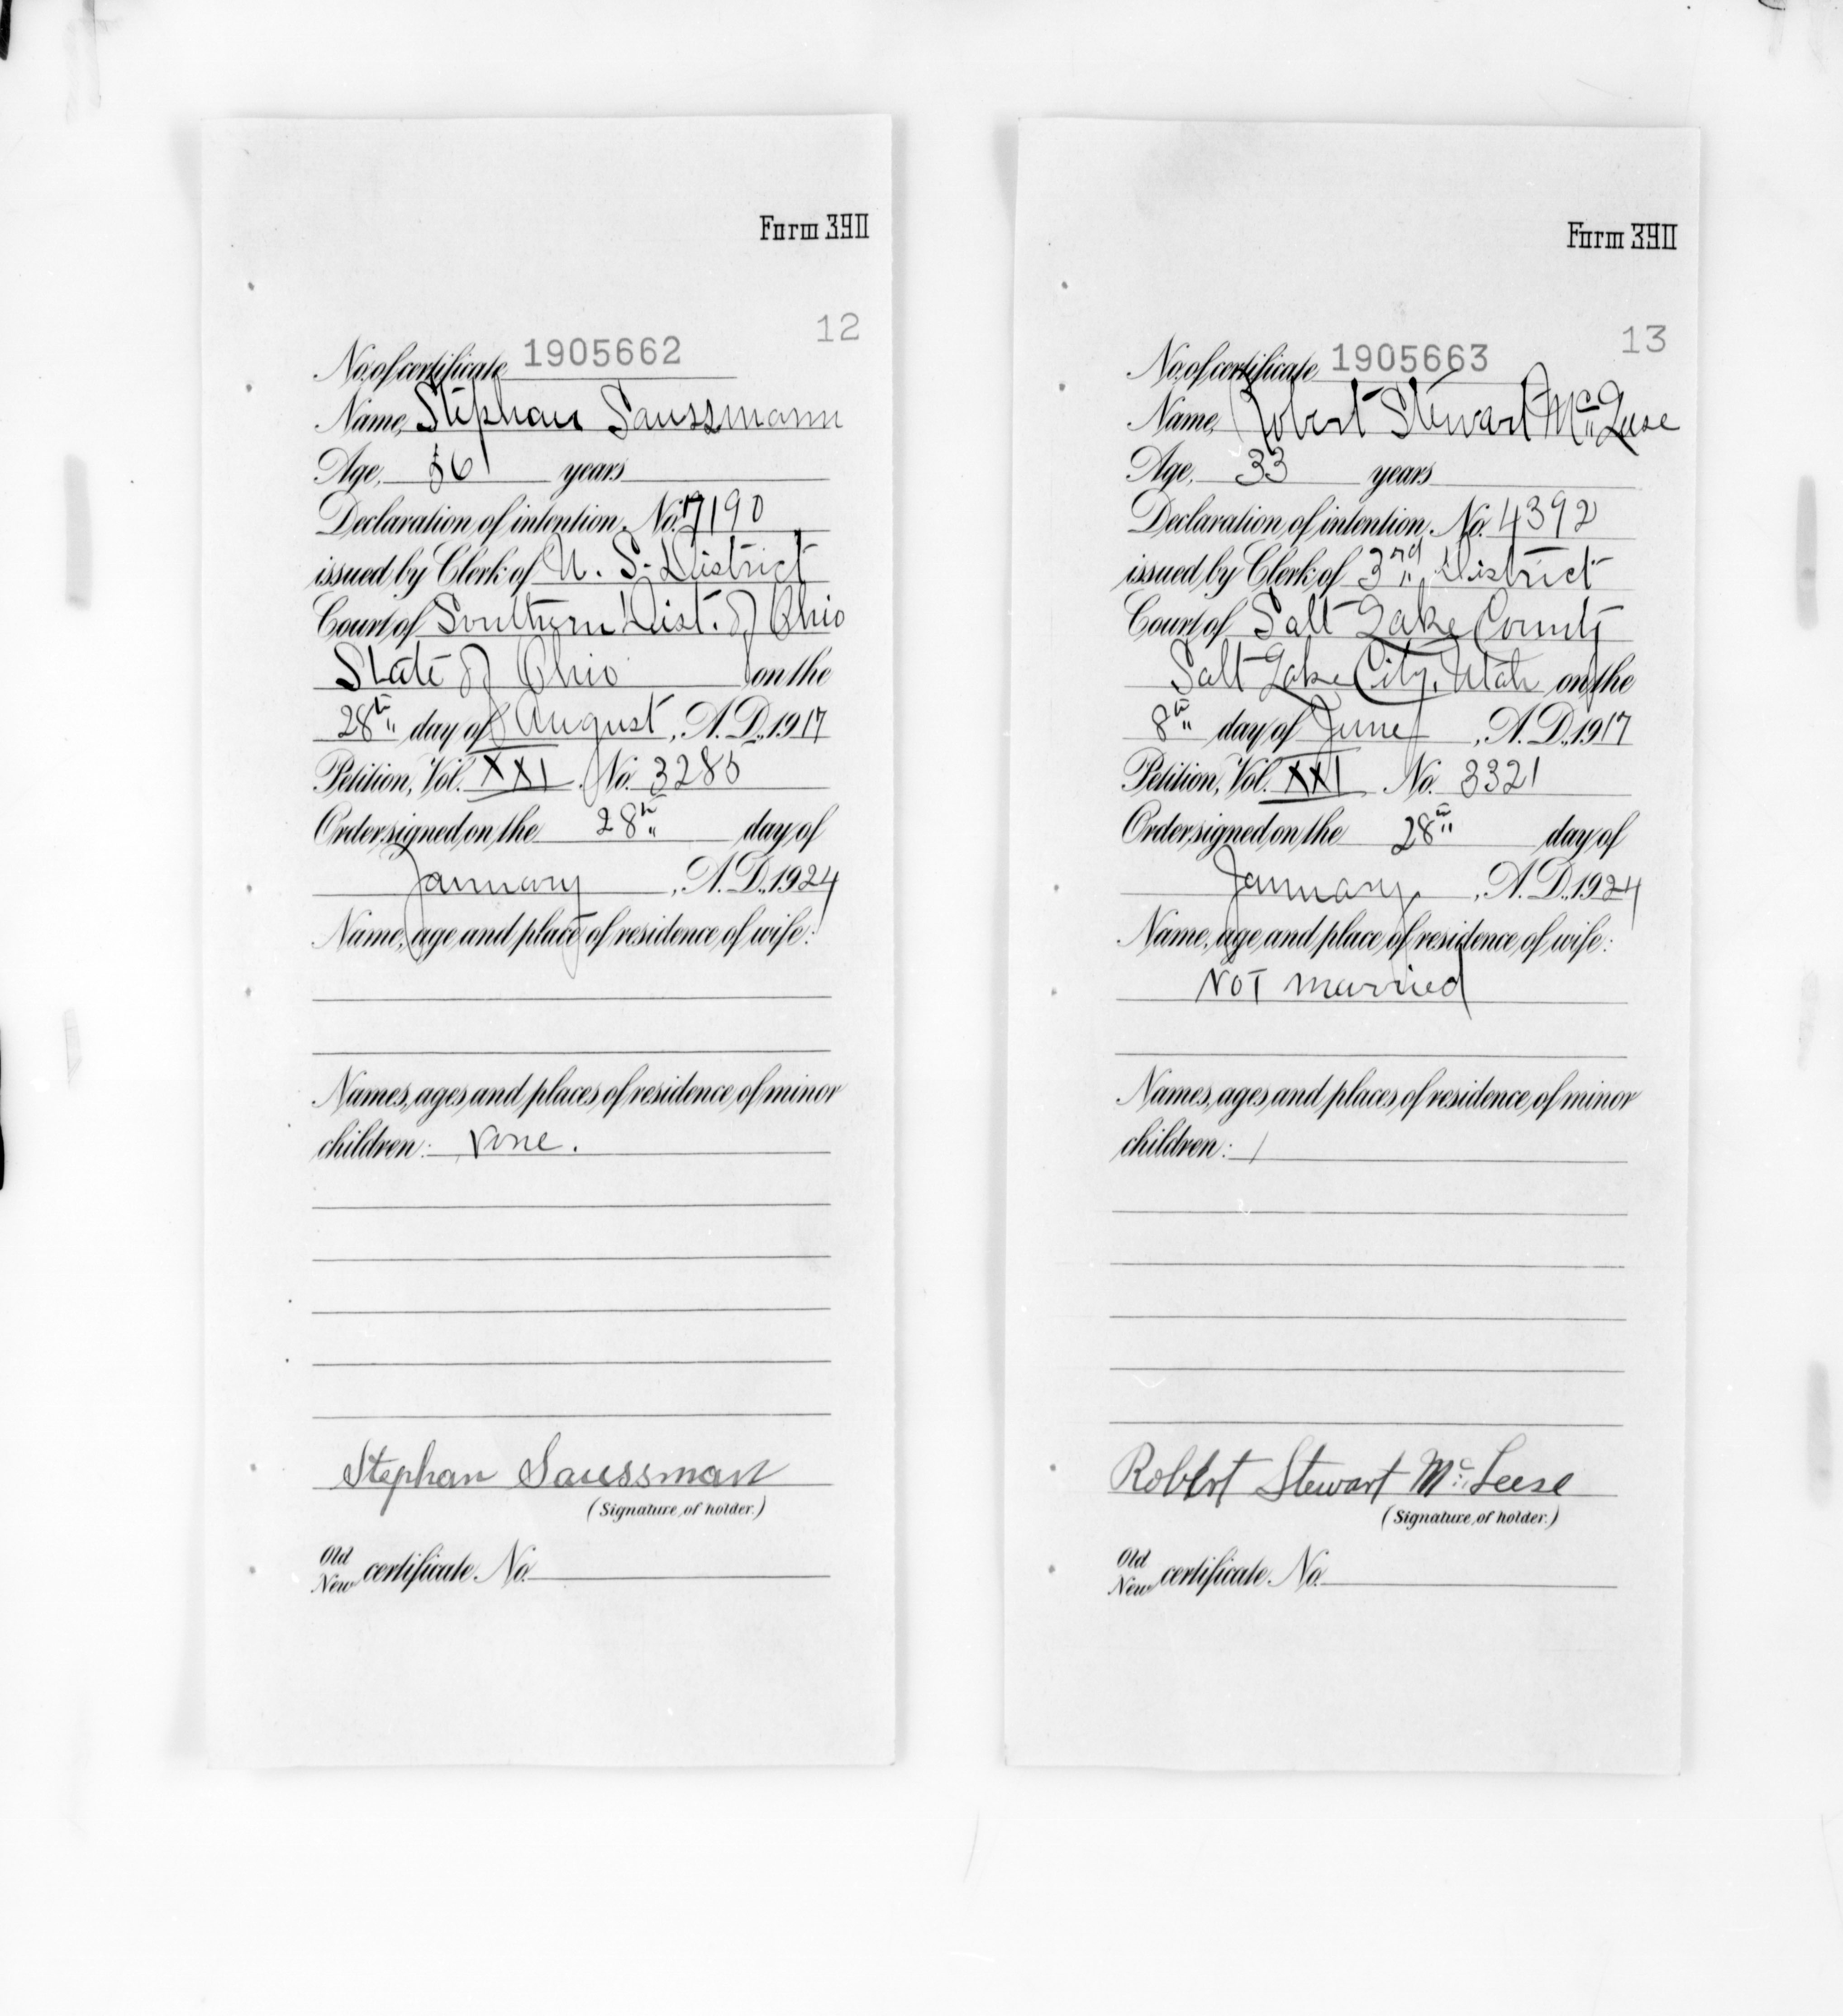 Form 390
12
No. of certificate 1905662
Name, Stephan Saussmann
Age, 36 years
Declaration of intention, No. 17190
issued by Clerk of U. S. District
Court of Southern Dist. of Ohio
State of Ohio on the
28th day of August, A. D., 1917
Petition, Vol. XXI No. 3285
Order signed on the 28th day of
January, A. D., 1924
Name, age and place of residence of wife:
Names, ages and places of residence of minor
children: None.
Stephan Saussman
(Signature of holder.)
Old
New certificate No.
Form 390
13
No. of certificate 1905663
Name, Robert Stewart McLeese
Age, 33 years
Declaration of intention, No. 4392
issued by Clerk of 3rd District
Court of Salt Lake County
Salt Lake City, Utah on the
8th day of June, A. D., 1917
Petition, Vol. XXI No. 3321
Order signed on the 28th day of
January, A. D., 1924
Name, age and place of residence of wife:
Not married
Names, ages and places of residence of minor
children: /
Robert Stewart McLeese
(Signature of holder.)
Old
New certificate No.